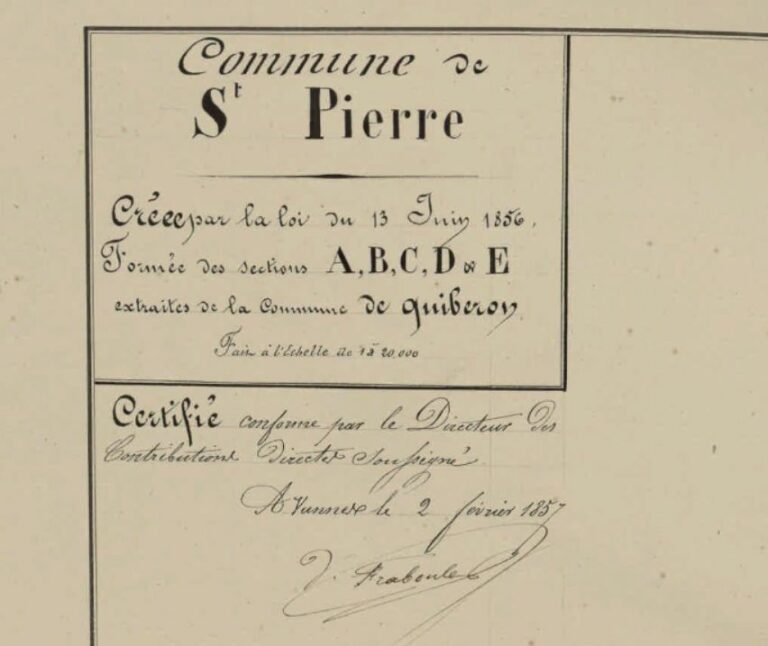 Commune de
St Pierre
Créée par la loi du 13 Juin 1856.
Formée des sections A, B, C, D & E
extraites de la Commune de Quiberon
Fait à l'Echelle de 1 à 20,000
Certifié conforme par le Directeur des
Contributions Directes soussigné
A Vannes le 2 février 1857